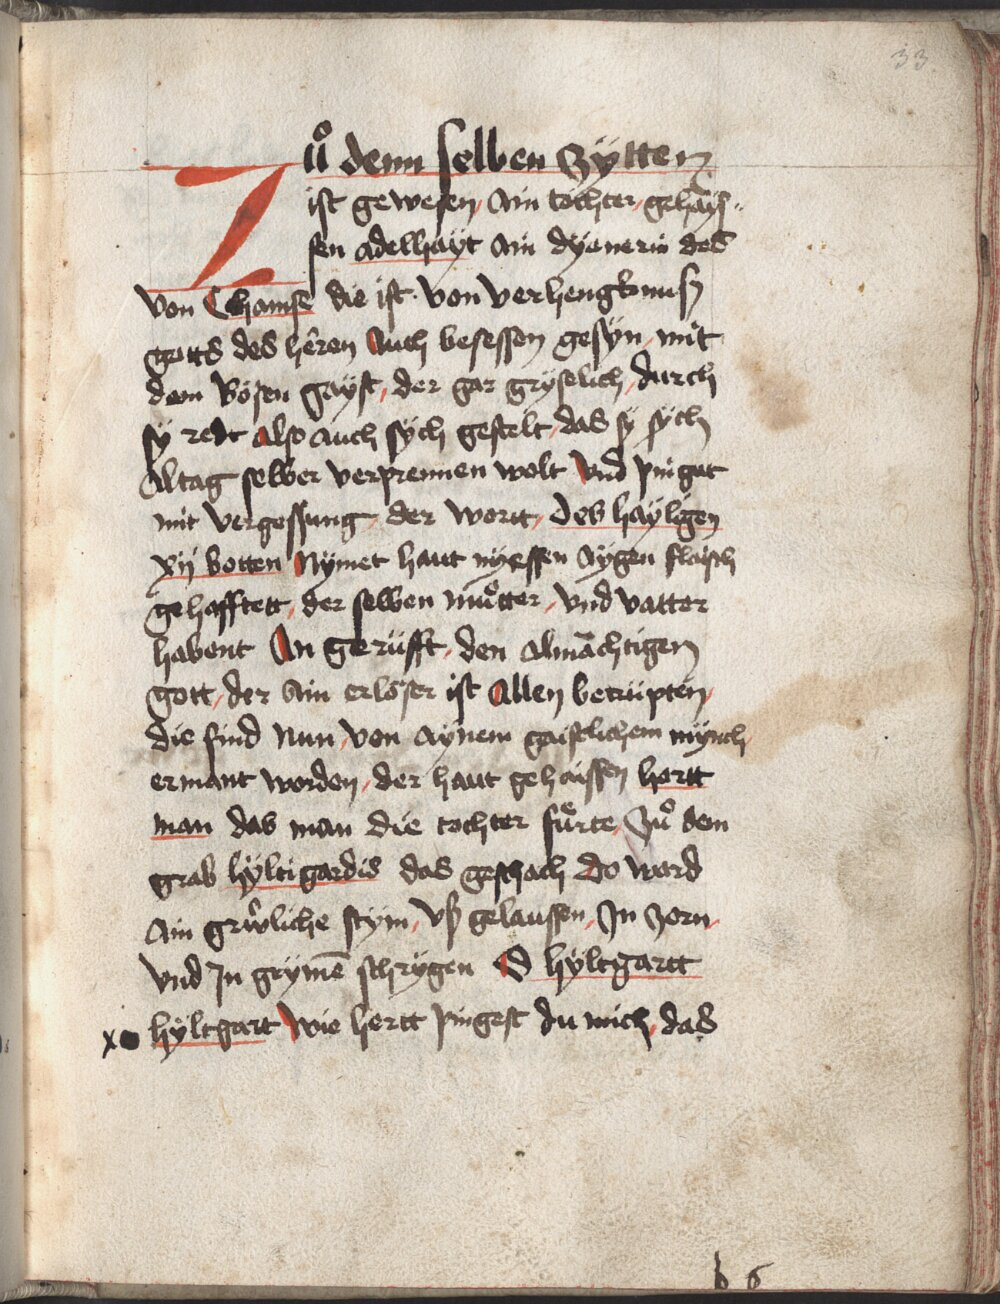 33
Zů denn selben Zÿtten
ist gewesen, Ain tochter, gehaÿs=
sen Adelhayt Ain dyenerin des
von Chamse die ist von verhengknuß
gotts des hêren Auch besessen gesyn, mit
dem Bösen gayst, der gar gryselich, durch
sy redt also Auch sÿch gestelt, das sy sych
Altag selber verprennen wolt Vnd pingat
mit vergessung, der wortt, des haÿligen
xij botten Nymet haut myessen Aygen flaisch
gehafftett, der selben můtter, vnd vatter
habent An gerüfft, den Almächtigen
gott, der Ain erlöser ist Allen betrüpten,
die sind Nun, von Aynem gaistlichem mynch,
ermant worden, der haut gehaissen hertt
man das man die tochter fůrte, Zů dem
grab hÿltigardis das geschach Do ward
Ain grẘliche stÿm, vß gelaussen, In Zorn,
vnd In grymē schrygen O hÿltgartt
hÿltgart Wie hertt pingest du mich, das
b 6